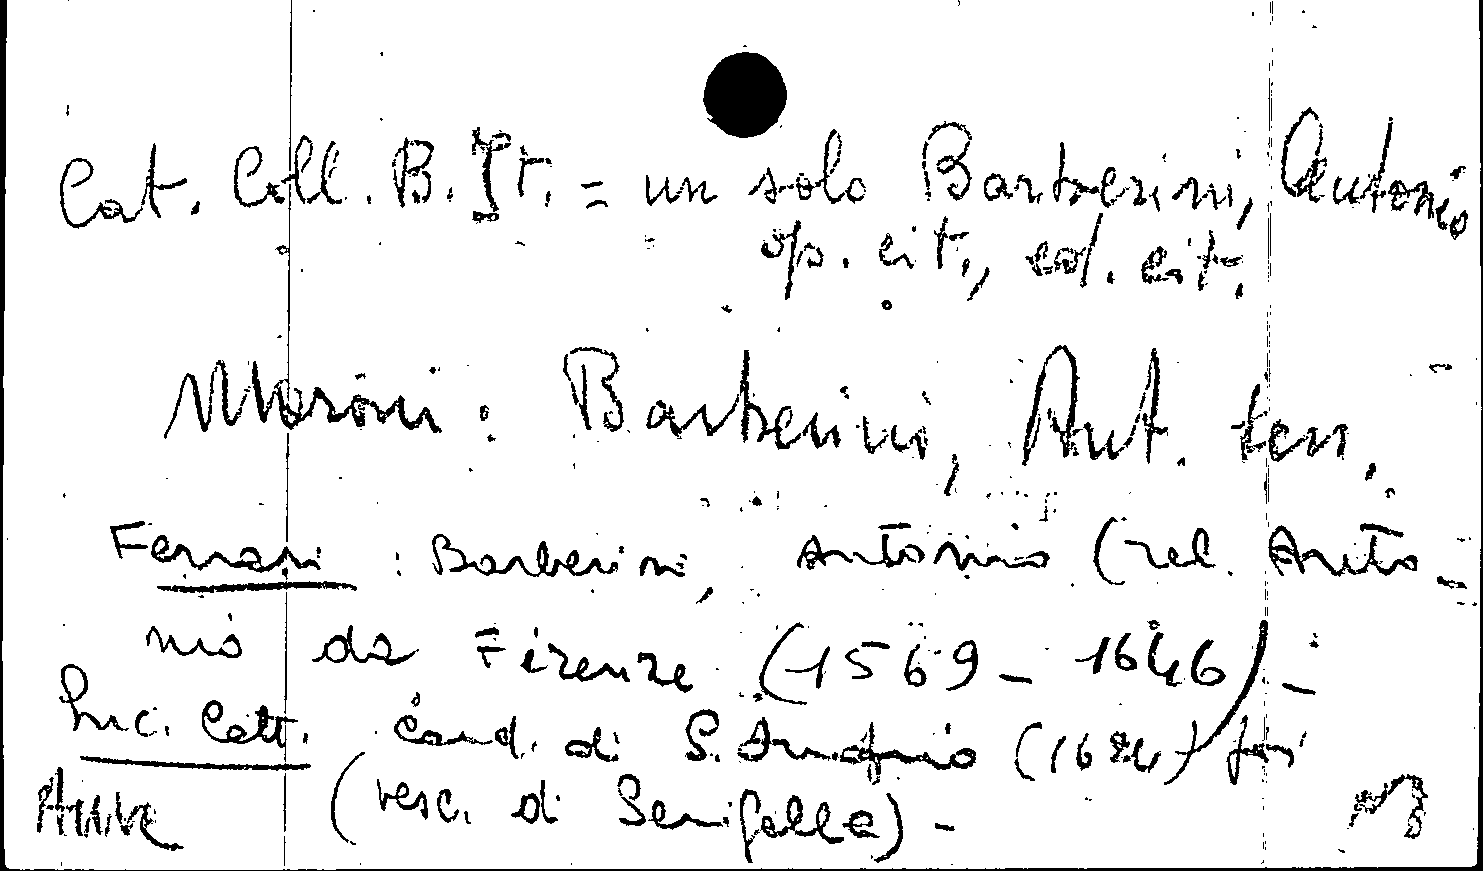 Cat. Coll. B. It. = un solo Barberini, Antonio
op. cit., ed. cit.
Moroni: Barberini, Ant. sen.
Ferrari: Barberini, Antonio (rel. Anto-
nio da Firenze (1569 - 1646) -
Enc. Catt. Card. di S. Onofrio (1624) poi
(vesc. di Senigallia) -